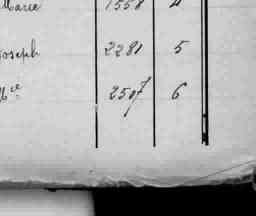 Marie 1558 4
Joseph 2281 5
2507 6